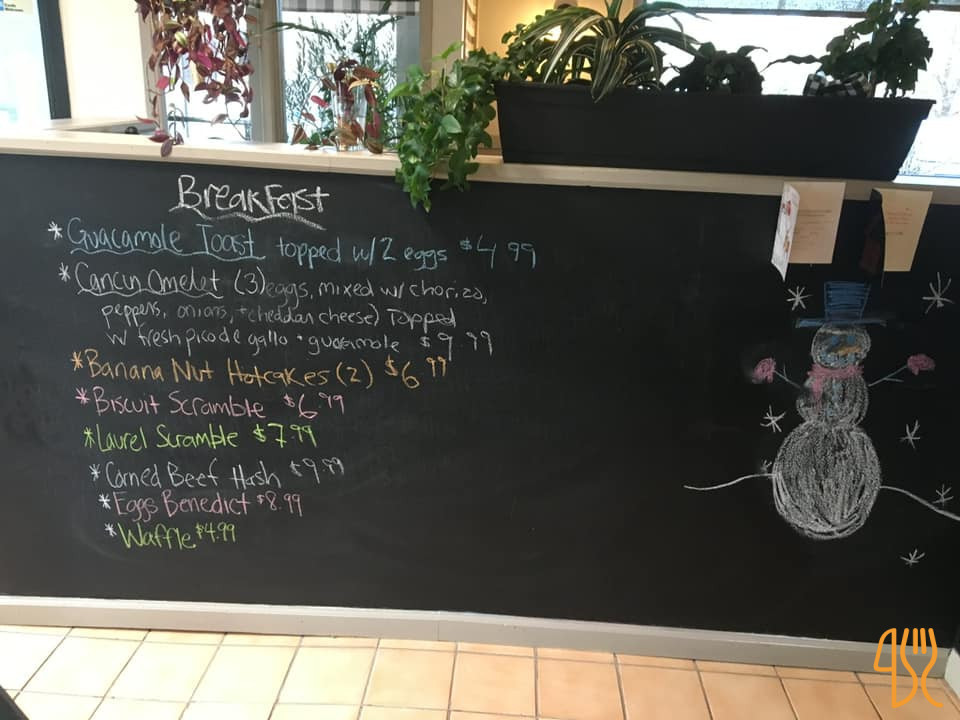 BreakFast
* Guacamole Toast topped w/ 2 eggs $4.99
* Cancun Omelet (3) eggs, mixed w/ chorizo,
peppers, onions, + cheddar cheese) Topped
w/ fresh pico de gallo + guacamole $9.99
* Banana Nut Hotcakes (2) $6.99
* Biscuit Scramble $6.99
* Laurel Scramble $7.99
* Corned Beef Hash $9.99
* Eggs Benedict $8.99
* Waffle $4.99